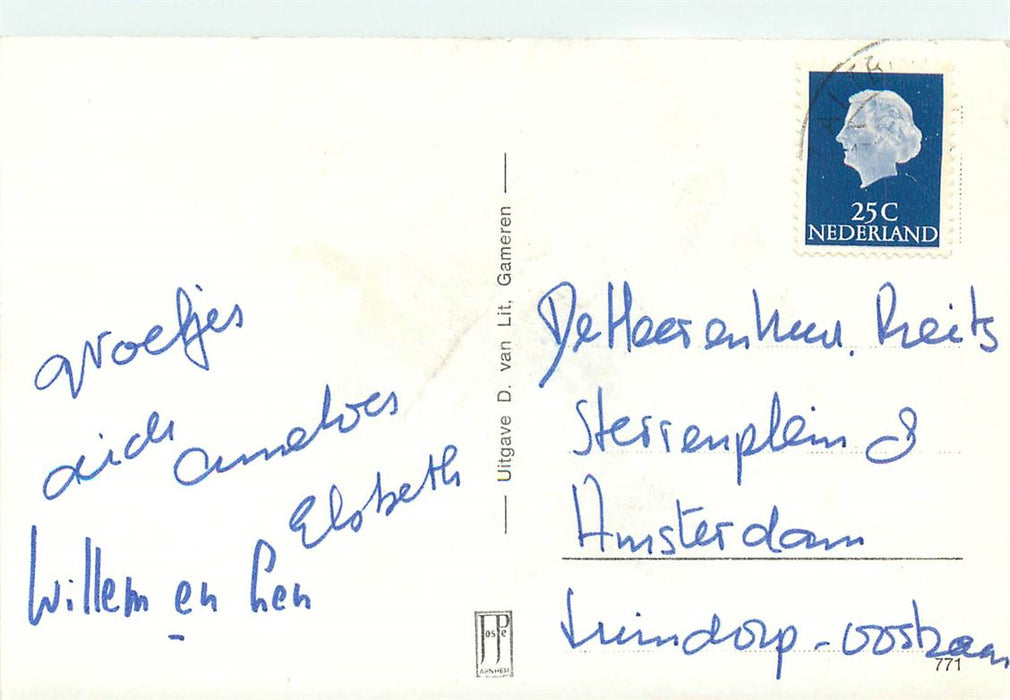 groetjes
Anneloes
Elsbeth
Willem en Len
Uitgave D. van Lit, Gameren
25C
NEDERLAND
De Heer en Mevr. Reits
Sterrenplein 8
Amsterdam
Tuindorp-oostzaan
JP
oste
ARNHEM
771